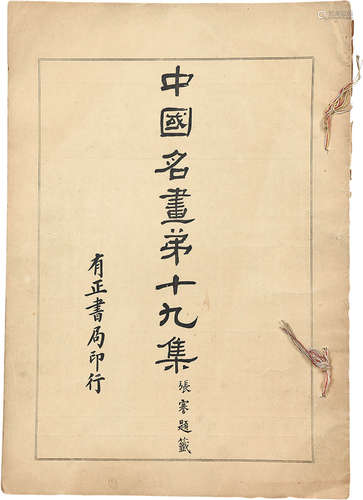 中國名畫第十九集
張謇題籤
有正書局印行